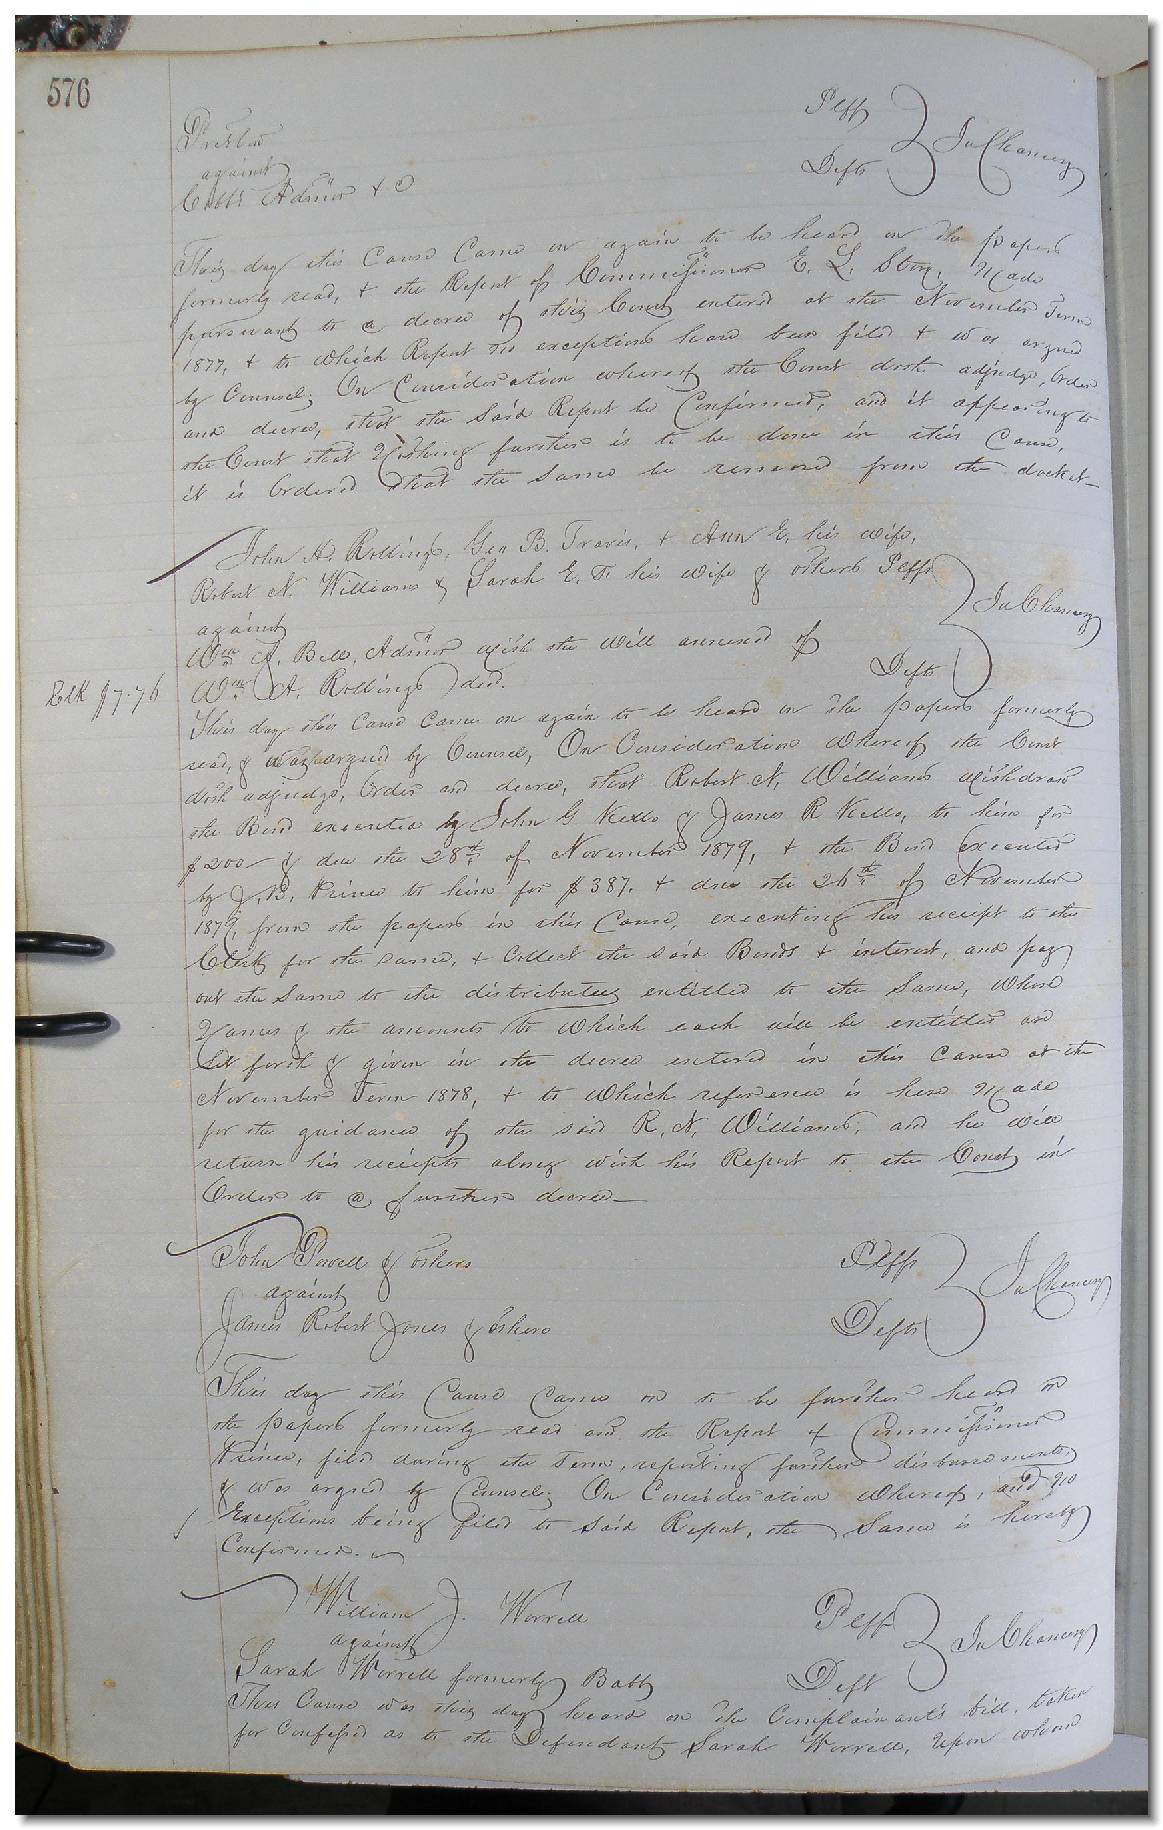 576
Plff
In Chancery
against
Defts
Cobbs Admor & C
This day this Cause Came on again to be heard on the papers
formerly read, & the Report of Commissioner E. L. Story, Made
pursuant to a decree of this Court entered at the November Term
1877, & to which Report no exceptions have been filed & was argued
by Counsel, On Consideration whereof the Court doth adjudge, Order
and decree, that the Said Report be Confirmed, and it appearing to
the Court that Nothing further is to be done in this Cause,
it is Ordered that the Same be removed from the docket—
John H. Rollings, Geo B. Travis, & Ann E. his wife,
Robert N. Williams & Sarah E. his wife & others Plffs
In Chancery
against
Wm A. Bell, Admor with the Will annexed of
Wm A. Rollings decd. Defts
Clk $7.76
This day this Cause Came on again to be heard on the papers formerly
read, & was argued by Counsel, On Consideration whereof the Court
doth adjudge, Order and decree, that Robert N. Williams withdraw
the Bond executed by John G Kello & James R Kello, to him for
$200 & due the 28th of November 1879, & the Bond Executed
by J. B. Prince to him for $387. & due the 26th of November
1879, from the papers in this Cause, executing his receipt to the
Clerk for the same, & Collect the said Bonds & interest, and pay
out the Same to the distributees entitled to the Same, whose
Names & the amounts to which each will be entitled are
Set forth & given in the decree entered in this Cause at the
November Term 1878, & to which reference is here Made
for the guidance of the said R. N. Williams, and he will
return his receipts along with his Report to the Court in
Order to a further decree—
John Powell & others Plffs
In Chancery
against
James Robert Jones & others Defts
This day this Cause Came on to be further heard on
the papers formerly read and the Report of Commissioner
Prince, filed during the Term, reporting further disbursements,
& was argued by Counsel, On Consideration whereof, and no
Exceptions being filed to Said Report, the Same is hereby
Confirmed.
William J. Worrell Plff
In Chancery
against
Sarah Worrell formerly Babb Deft
This Cause was this day heard on the Complainant's bill, taken
for Confessed as to the Defendant Sarah Worrell, Upon whom